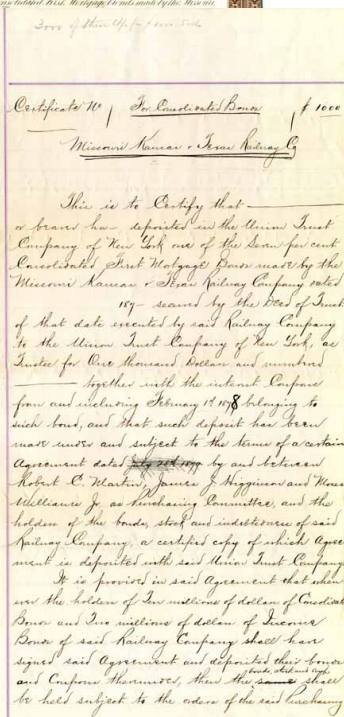 Consolidated First Mortgage bonds made by the Missouri,
Certificate No For Consolidated Bonds $ 1000
Missouri Kansas & Texas Railway Co
This is to Certify that
or bearer ha- deposited in the Union Trust
Company of New York one of the Seven per cent
Consolidated First Mortgage Bonds made by the
Missouri Kansas & Texas Railway Company dated
187- secured by the Deed of Trust
of that date executed by said Railway Company
to the Union Trust Company of New York, as
Trustee for One thousand Dollars and numbered
together with the interest Coupons
from and including February 1st 1878 belonging to
such bond, and that such deposit has been
made under and subject to the terms of a certain
Agreement dated by and between
Robert C. Martin, James J Higginson and Moses
Williams Jr as Purchasing Committee, and the
holders of the bonds, stock and indebtedness of said
Railway Company, a certified copy of which Agree
ment is deposited with said Union Trust Company
It is provided in said Agreement that when
ever the holders of Ten millions of dollars of Consolidated
Bonds and Two millions of dollars of Income
Bonds of said Railway Company shall have
signed said Agreement and deposited their bonds
and Coupons thereunder, then the same shall
be held subject to the orders of the said Purchasing